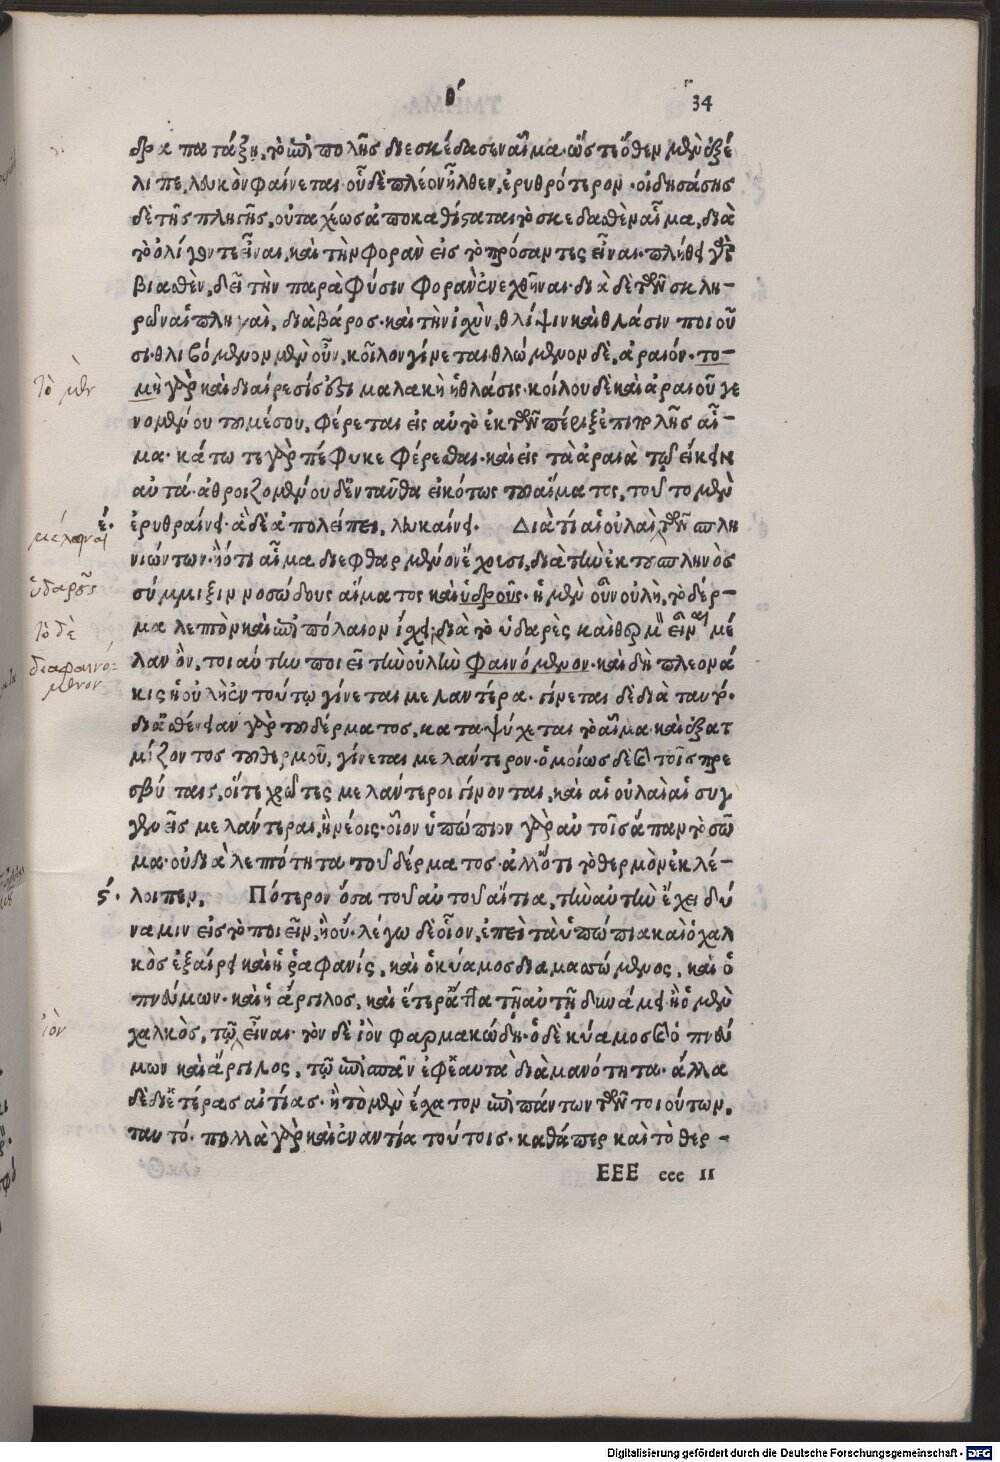 θ´ 34
δρα πατάξῃ, τὸ ἐπιπολῆς διεσκέδασεν αἷμα. ὥστε ὅθεν μὲν ἐξέ
λιπε, λευκὸν φαίνεται. οὗ δὲ πλέον ἦλθεν, ἐρυθρότερον. οἰδησάσης
δὲ τῆς πληγῆς, οὐ ταχέως ἀποκαθίςαται τὸ σκεδασθὲν αἷμα, διὰ
τὸ ὀλίγον τε εἶναι, καὶ τὴν φορὰν εἰς τὸ πρόσαντες εἶναι. πλήθει γὰρ
βιασθὲν, δεῖ τὴν παρὰ φύσιν φορὰν ἐνεχθῆναι. διὰ δὲ τῶν σκλη-
ρῶν αἱ πληγαὶ, διὰ βάρος. καὶ τὴν ἰχὺν, θλίψιν καὶ θλάσιν ποιοῦ
σι. θλιβόμενον μὲν οὖν, κοῖλον γίνεται. θλώμενον δὲ, ἀραιόν. το-
μὴ γὰρ καὶ διαίρεσίς ἐςι μαλακὴ ἡ θλάσις. κοίλου δὲ καὶ ἀραιοῦ γε
νομένου του μέσου, φέρεται εἰς αὐτὸ ἐκ τῶν πέριξ ἐπιπολῆς αἷ-
μα. κάτω τε γὰρ πέφυκε φέρεσθαι. καὶ εἰς τὰ ἀραιὰ τῷ εἴκειν
αὐτά. ἀθροιζομένου δ' ἐνταῦθα εἰκότως του αἵματος, τοῦτο μὲν
έ. ἐρυθραίνει. ἃ δὲ ἀπολείπει, λευκαίνει. Διὰ τί αἱ οὐλαὶ τῶν σπλη
νιώντων. ἢ ὅτι αἷμα διεφθαρμένον ἔχουσι, διὰ τὴν ἐκ του σπληνὸς
σύμμιξιν νοσώδους αἵματος καὶ ὑδροῦς. ἡ μὲν οὖν οὐλὴ, τὸ δέρ-
μα λεπτὸν καὶ ἐπιπόλαιον ἴχει; διὰ τὸ ὑδαρὲς καὶ μέ
λαν ὂν, τοιαύτην ποιεῖ τὴν οὐλὴν φαινόμενον. καὶ δὴ πλεονά
κις ἡ οὐλὴ ἐν τούτῳ γίνεται μελαντέρα. γίνεται δὲ διὰ ταυτό.
διασθένειαν γὰρ του δέρματος, καταψύχεται τὸ αἷμα. καὶ ἐξατ
μίζοντος του θερμοῦ, γίνεται μελάντερον. ὁμοίως δὲ καὶ τοῖς πρε
σβύταις, οἵ τε χρῶτες μελάντεροι γίνονται, καὶ αἱ οὐλαὶ αἱ συγ
γενεῖς μελάντεραι, ἢ νέοις. οἷον ὑπώπιον γὰρ αὐτοῖς ἅπαν τὸ σῶ
μα. οὐ διὰ λεπτότητα τοῦ δέρματος. ἀλλ' ὅτι τὸ θερμὸν ἐκλέ-
ς´. λοιπεν. Πότερον ὅσα τοῦ αὐτοῦ αἴτια, τὴν αὐτὴν ἔχει δύ
ναμιν εἰς τὸ ποιεῖν, ἢ οὔ. λέγω δὲ οἷον, ἐπεὶ τὰ ὑπώπια καὶ ὁ χαλ
κὸς ἐξαίρει καὶ ἡ ῥαφανίς, καὶ ὁ κύαμος διαμασώμενος, καὶ ὁ
πνεύμων. καὶ ἡ ἄργιλος, καὶ ἕτερ' ἄττα τῇ αὐτῇ δυνάμει. ἢ ὁ μὲν
χαλκὸς, τῷ εἶναι τὸν δὲ ἰὸν φαρμακώδη. ὁ δὲ κύαμος καὶ ὁ πνεύ
μων καὶ ἄργιλος, τῷ ἐπισπᾶν ἐφ' ἑαυτὰ διὰ μανότητα. ἄλλα
δὲ δι' ἑτέρας αἰτίας. ἢ τὸ μὲν ἔχατον ἐπὶ πάντων τῶν τοιούτων,
ταυτό. πολλὰ γὰρ καὶ ἐναντία τούτοις. καθάπερ καὶ τὸ θερ-
EEE eee II
τὸ μὲν
μέλαιναι
ὑδαροῦς
τὸ δὲ
διαφαινό-
μενον
ἰὸν
Digitalisierung gefördert durch die Deutsche Forschungsgemeinschaft - DFG